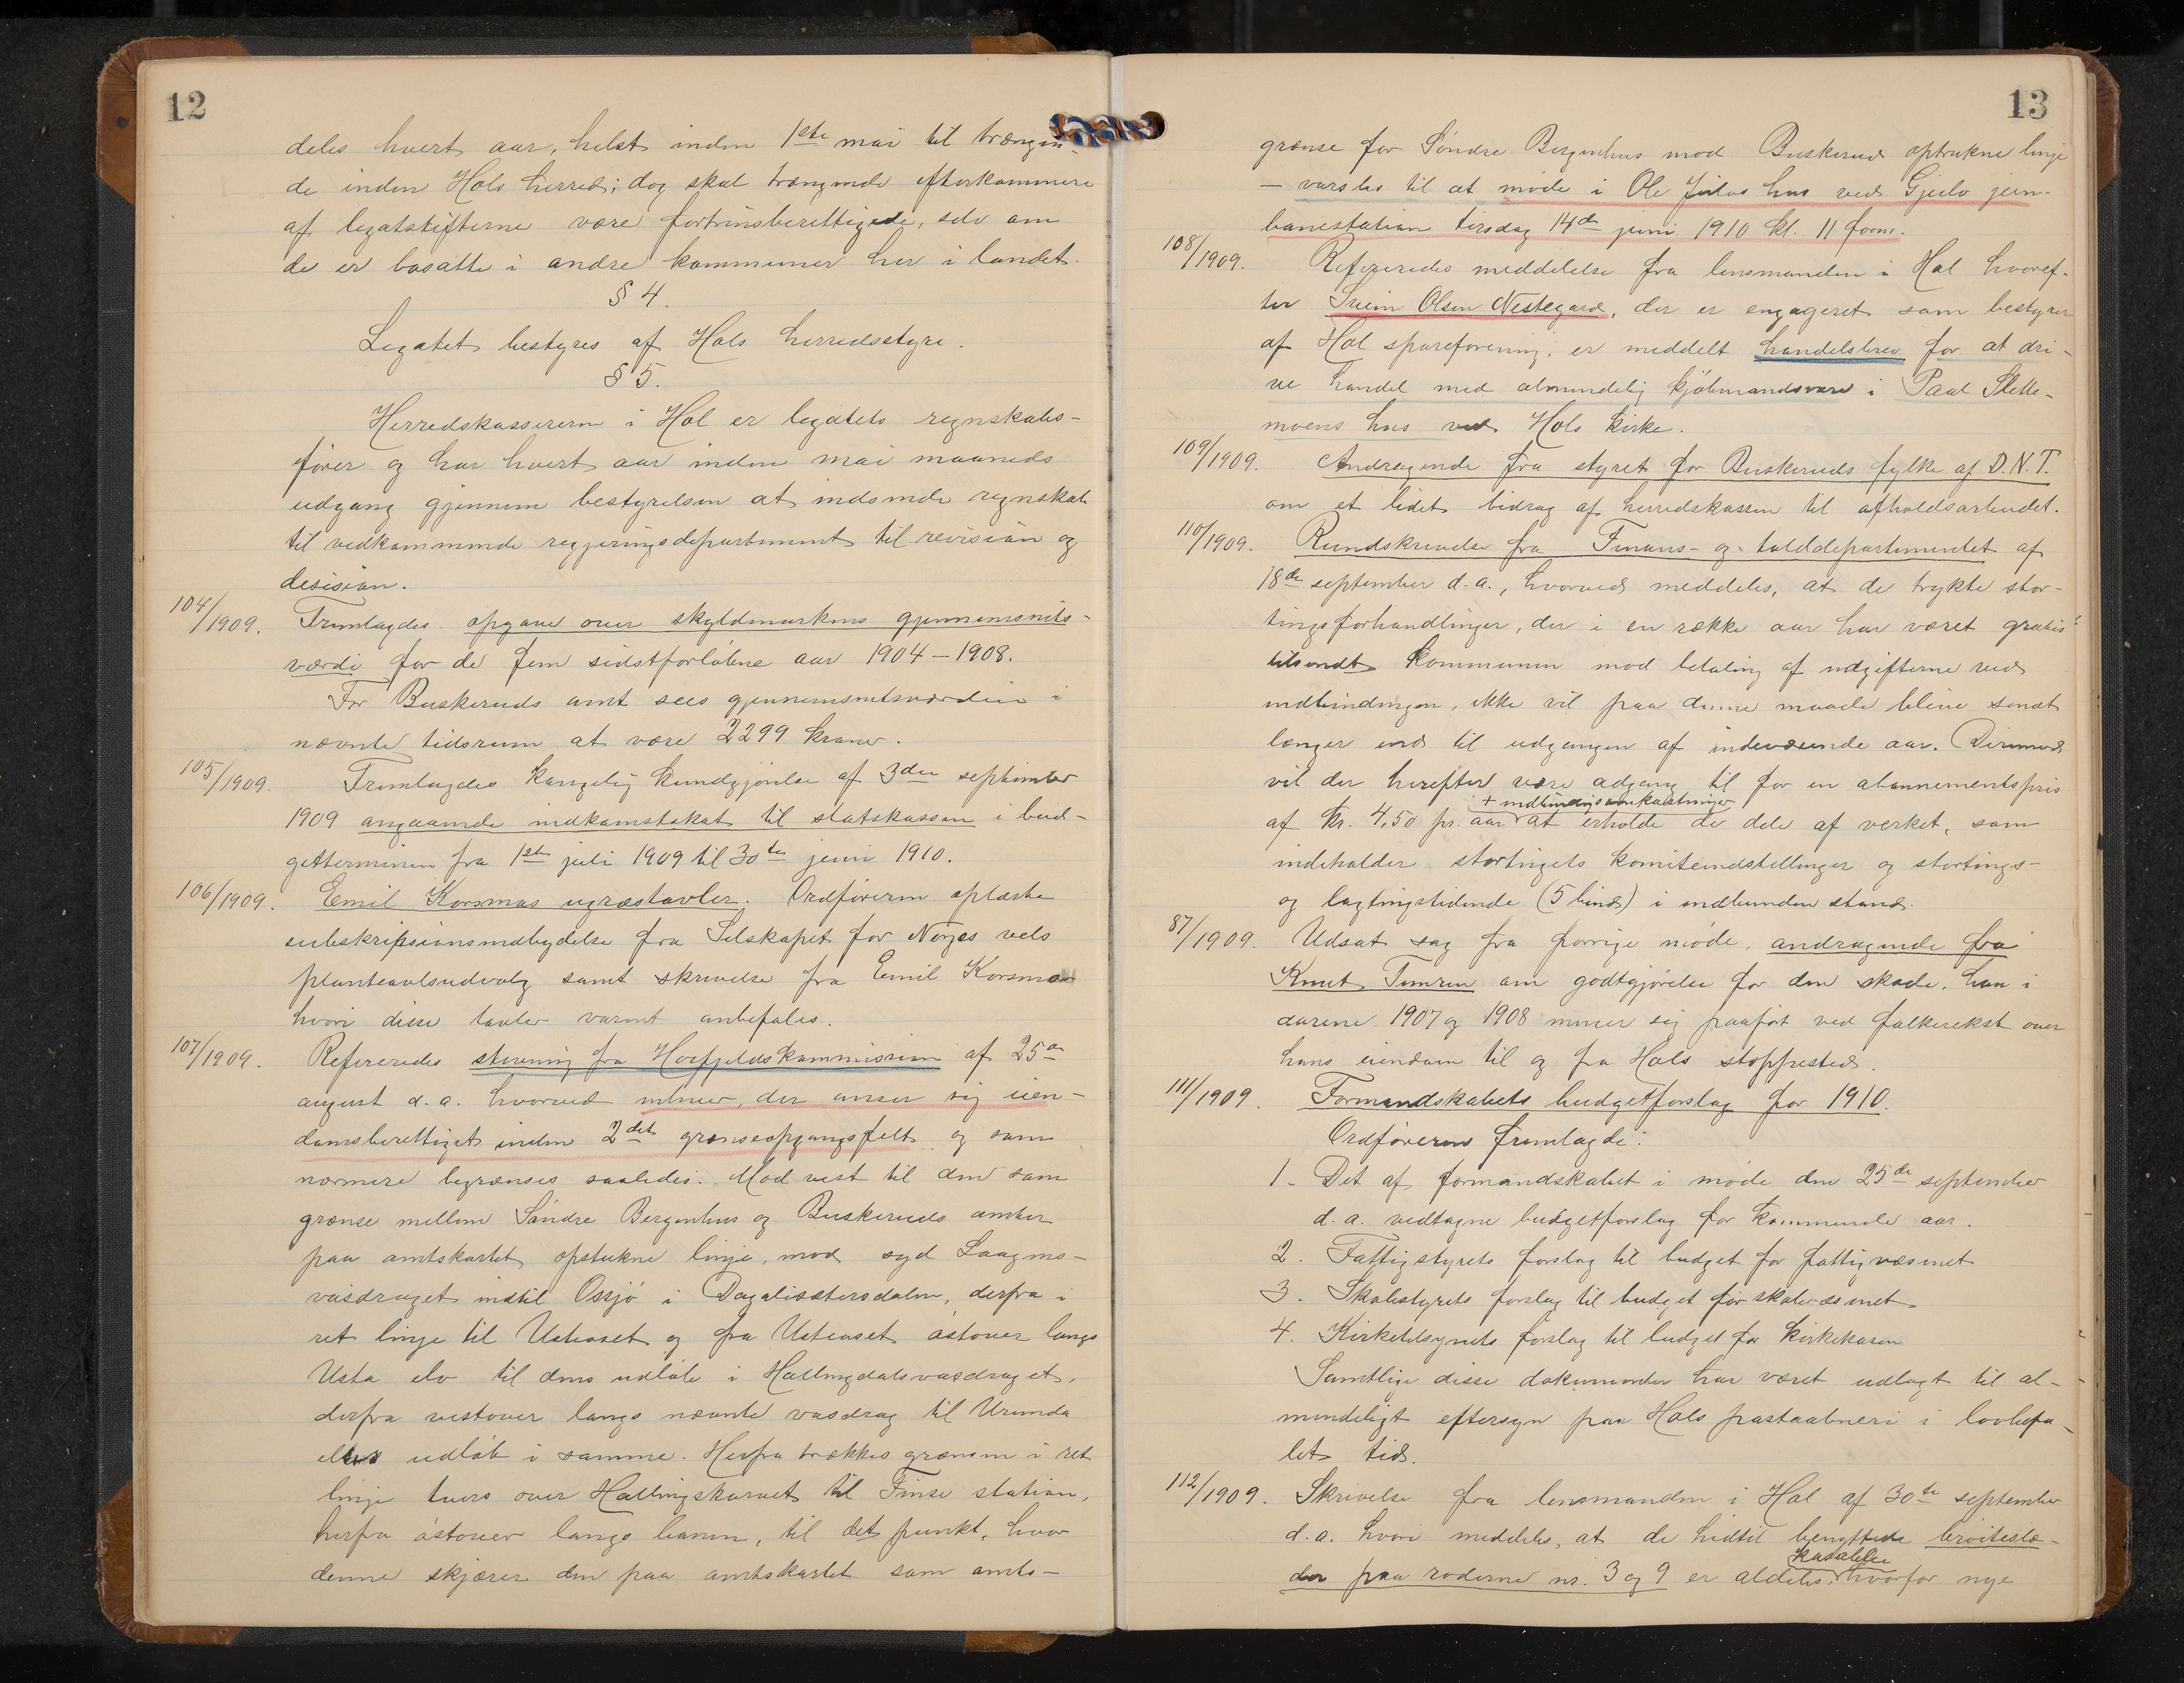 12
deles hvert aar, helst inden 1ste mai til trængen-
de inden Hols herred; dog skal trængende efterkommere
af legatstifterne være fortrinsberettigede, selv om
de er bosatte i andre kommuner her i landet.
§ 4.
Legatet bestyres af Hols herredsstyre.
§ 5.
Herredskassereren i Hol er legatets regnskabs-
fører og har hvert aar inden mai maaneds
udgang gjennem bestyrelsen at indsende regnskab
til vedkommende regjeringsdepartement til revision og
desision.
104/1909. Fremlagdes opgave over skyldmarkens gjennemsnits-
værdi for de fem sidstforløbne aar 1904-1908.
For Buskeruds amt sees gjennemsnitsværdien i
nævnte tidsrum at være 2299 kroner.
105/1909. Fremlagdes kongelig kundgjørelse af 3die september
1909 angaaende indkomstskat til statskassen i bud-
getterminen fra 1ste juli 1909 til 30te juni 1910.
106/1909. Emil Korsmos ugræstavler. Ordføreren oplæste
subskripsionsindbydelse fra Selskapet for Norges vels
planteavlsudvalg samt skrivelse fra Emil Korsmo
hvori disse tavler varmt anbefales.
107/1909. Refereredes stevning fra Høifjeldskommissionen af 25de
august d.a. hvorved enhver, der anser sig eien-
domsberettiget inden 2det grænseopgangsfelt og som
nærmere begrænses saaledes: Mod vest til den som
grænse mellem Søndre Bergenhus og Buskeruds amter
paa amtskartet optrukne linje, mod syd Laagens-
vasdraget indtil Ossjø i Dagalisætersdalen, derfra i
ret linje til Ustaoset og fra Ustaoset østover langs
Usta elv til dens udløb i Hallingdalsvasdraget,
derfra vestover langs nævnte vasdrag til Urunda
elvs udløb i samme. Herfra trækkes grænsen i ret
linje tvers over Hallingskarvet til Finse station,
herfra østover langs banen, til det punkt, hvor
denne skjærer den paa amtskartet som amts-
13
grænse for Søndre Bergenhus mod Buskerud optrukne linje
- varsles til at møde i Ole Julos hus ved Gjeilo jern-
banestation tirsdag 14de juni 1910 kl. 11 form.
108/1909. Refereredes meddelelse fra lensmanden i Hol hvoref-
ter Svein Olsen Nestegard, der er engageret som bestyrer
af Hol spareforening, er meddelt handelsbrev for at dri-
ve handel med almindelig kjøbmandsvare i Paal Slette-
moens hus ved Hols kirke.
109/1909. Andragende fra styret for Buskeruds fylke af D.N.T.
om et lidet bidrag af herredskassen til afholdsarbeidet.
110/1909. Rundskrivelse fra Finans- og tolddepartementet af
18de september d.a., hvorved meddeles, at de trykte stor-
tingsforhandlinger, der i en række aar har været gratis
tilsendt kommunen mod betaling af udgifterne ved
indbindingen, ikke vil paa denne maade blive sendt
længer end til udgangen af indeværende aar. Derimod
vil der herefter være adgang til for en abonnementspris
+ indbindingsomkostninger
af kr. 4,50 pr. aar at erholde de dele af verket, som
indeholder stortingets komiteindstillinger og stortings-
og lagtingstidende (5 bind) i indbunden stand.
87/1909. Udsat sag fra forrige møde, andragende fra
Knut Tunren om godtgjørelse for den skade, han i
aarene 1907 og 1908 mener sig paaført ved folkerekst over
hans eiendom til og fra Hols stoppested.
111/1909. Formandskabets budgetforslag for 1910.
Ordføreren fremlagde:
1. Det af formandskabet i møde den 25de september
d.a. vedtagne budgetforslag for kommende aar.
2. Fattigstyrets forslag til budget for fattigvæsenet
3. Skolestyrets forslag til budget for skolevæsenet.
4. Kirketilsynets forslag til budget for kirkekasen
Samtlige disse dokumenter har været udlagt til al-
mindeligt eftersyn paa Hols postaabneri i lovbefa-
let tid.
112/1909. Skrivelse fra lensmanden i Hol af 30te september
d.a. hvori meddeles, at de hidtil benyttede brøiteslæ-
kasable
der paa roderne nr. 3 og 9 er aldeles hvorfor nye